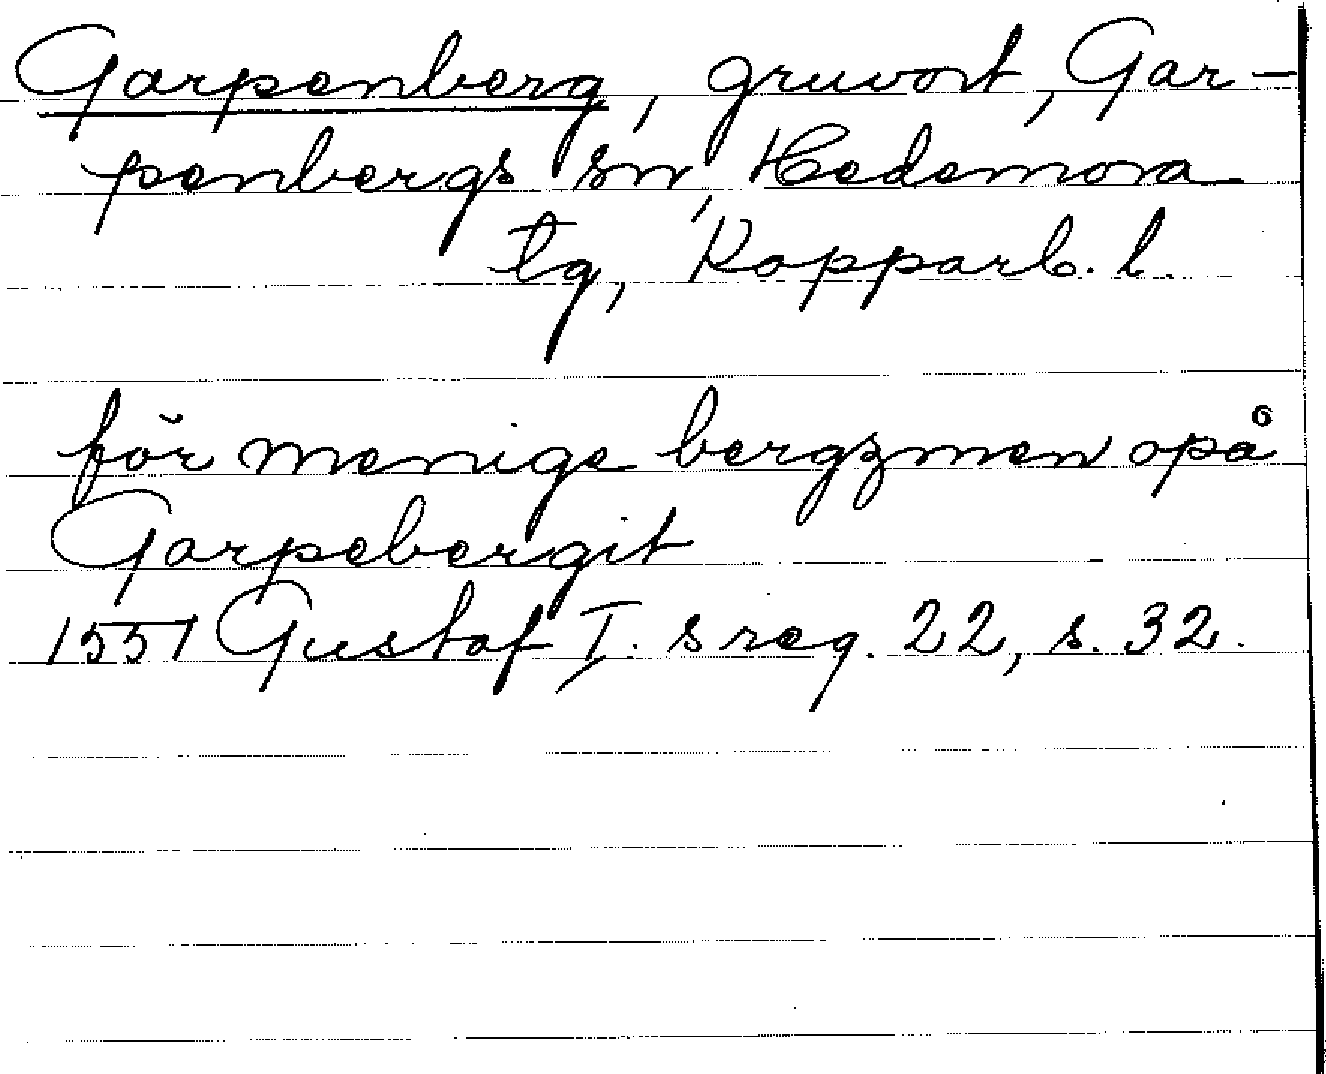 Garpenberg, gruvort, Gar-
penbergs sn, Hedemora
tg, Kopparb. l.
för menige bergzmen opå
Garpebergit
1551 Gustaf I. s reg. 22, s. 32.